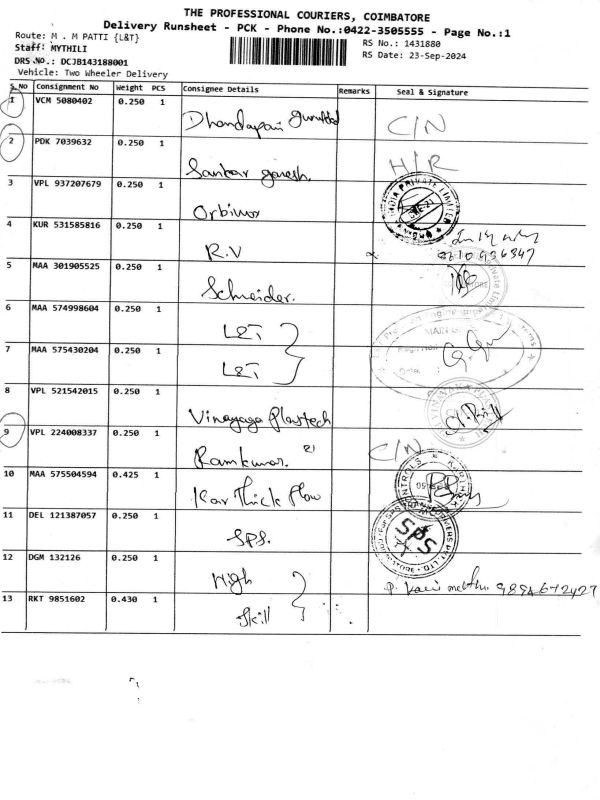 THE PROFESSIONAL COURIERS, COIMBATORE
Delivery Runsheet - PCK - Phone No.:0422-3505555 - Page No.:1
Route: M . M PATTI {L&T}
RS No.: 1431880
Staff: MYTHILI
RS Date: 23-Sep-2024
DRS No.: DCJB143188001
Vehicle: Two Wheeler Delivery
S.No Consignment No Weight PCS Consignee Details Remarks Seal & Signature
1 VCM 5080402 0.250 1 Dhandapani C/N
2 PDK 7039632 0.250 1 Sankar ganesh H/R
3 VPL 937207679 0.250 1
4 KUR 531585816 0.250 1 R.V
5 MAA 301905525 0.250 1 Schneider.
6 MAA 574998604 0.250 1 L&T
7 MAA 575430204 0.250 1 L&T
8 VPL 521542015 0.250 1 Vinayaga Plastech
9 VPL 224008337 0.250 1 Ramkumar. C/N
10 MAA 575504594 0.425 1 Kar Thick Flow
11 DEL 121387057 0.250 1 SPS. SPS
12 DGM 132126 0.250 1 High 9894672427
13 RKT 9851602 0.430 1 Skill